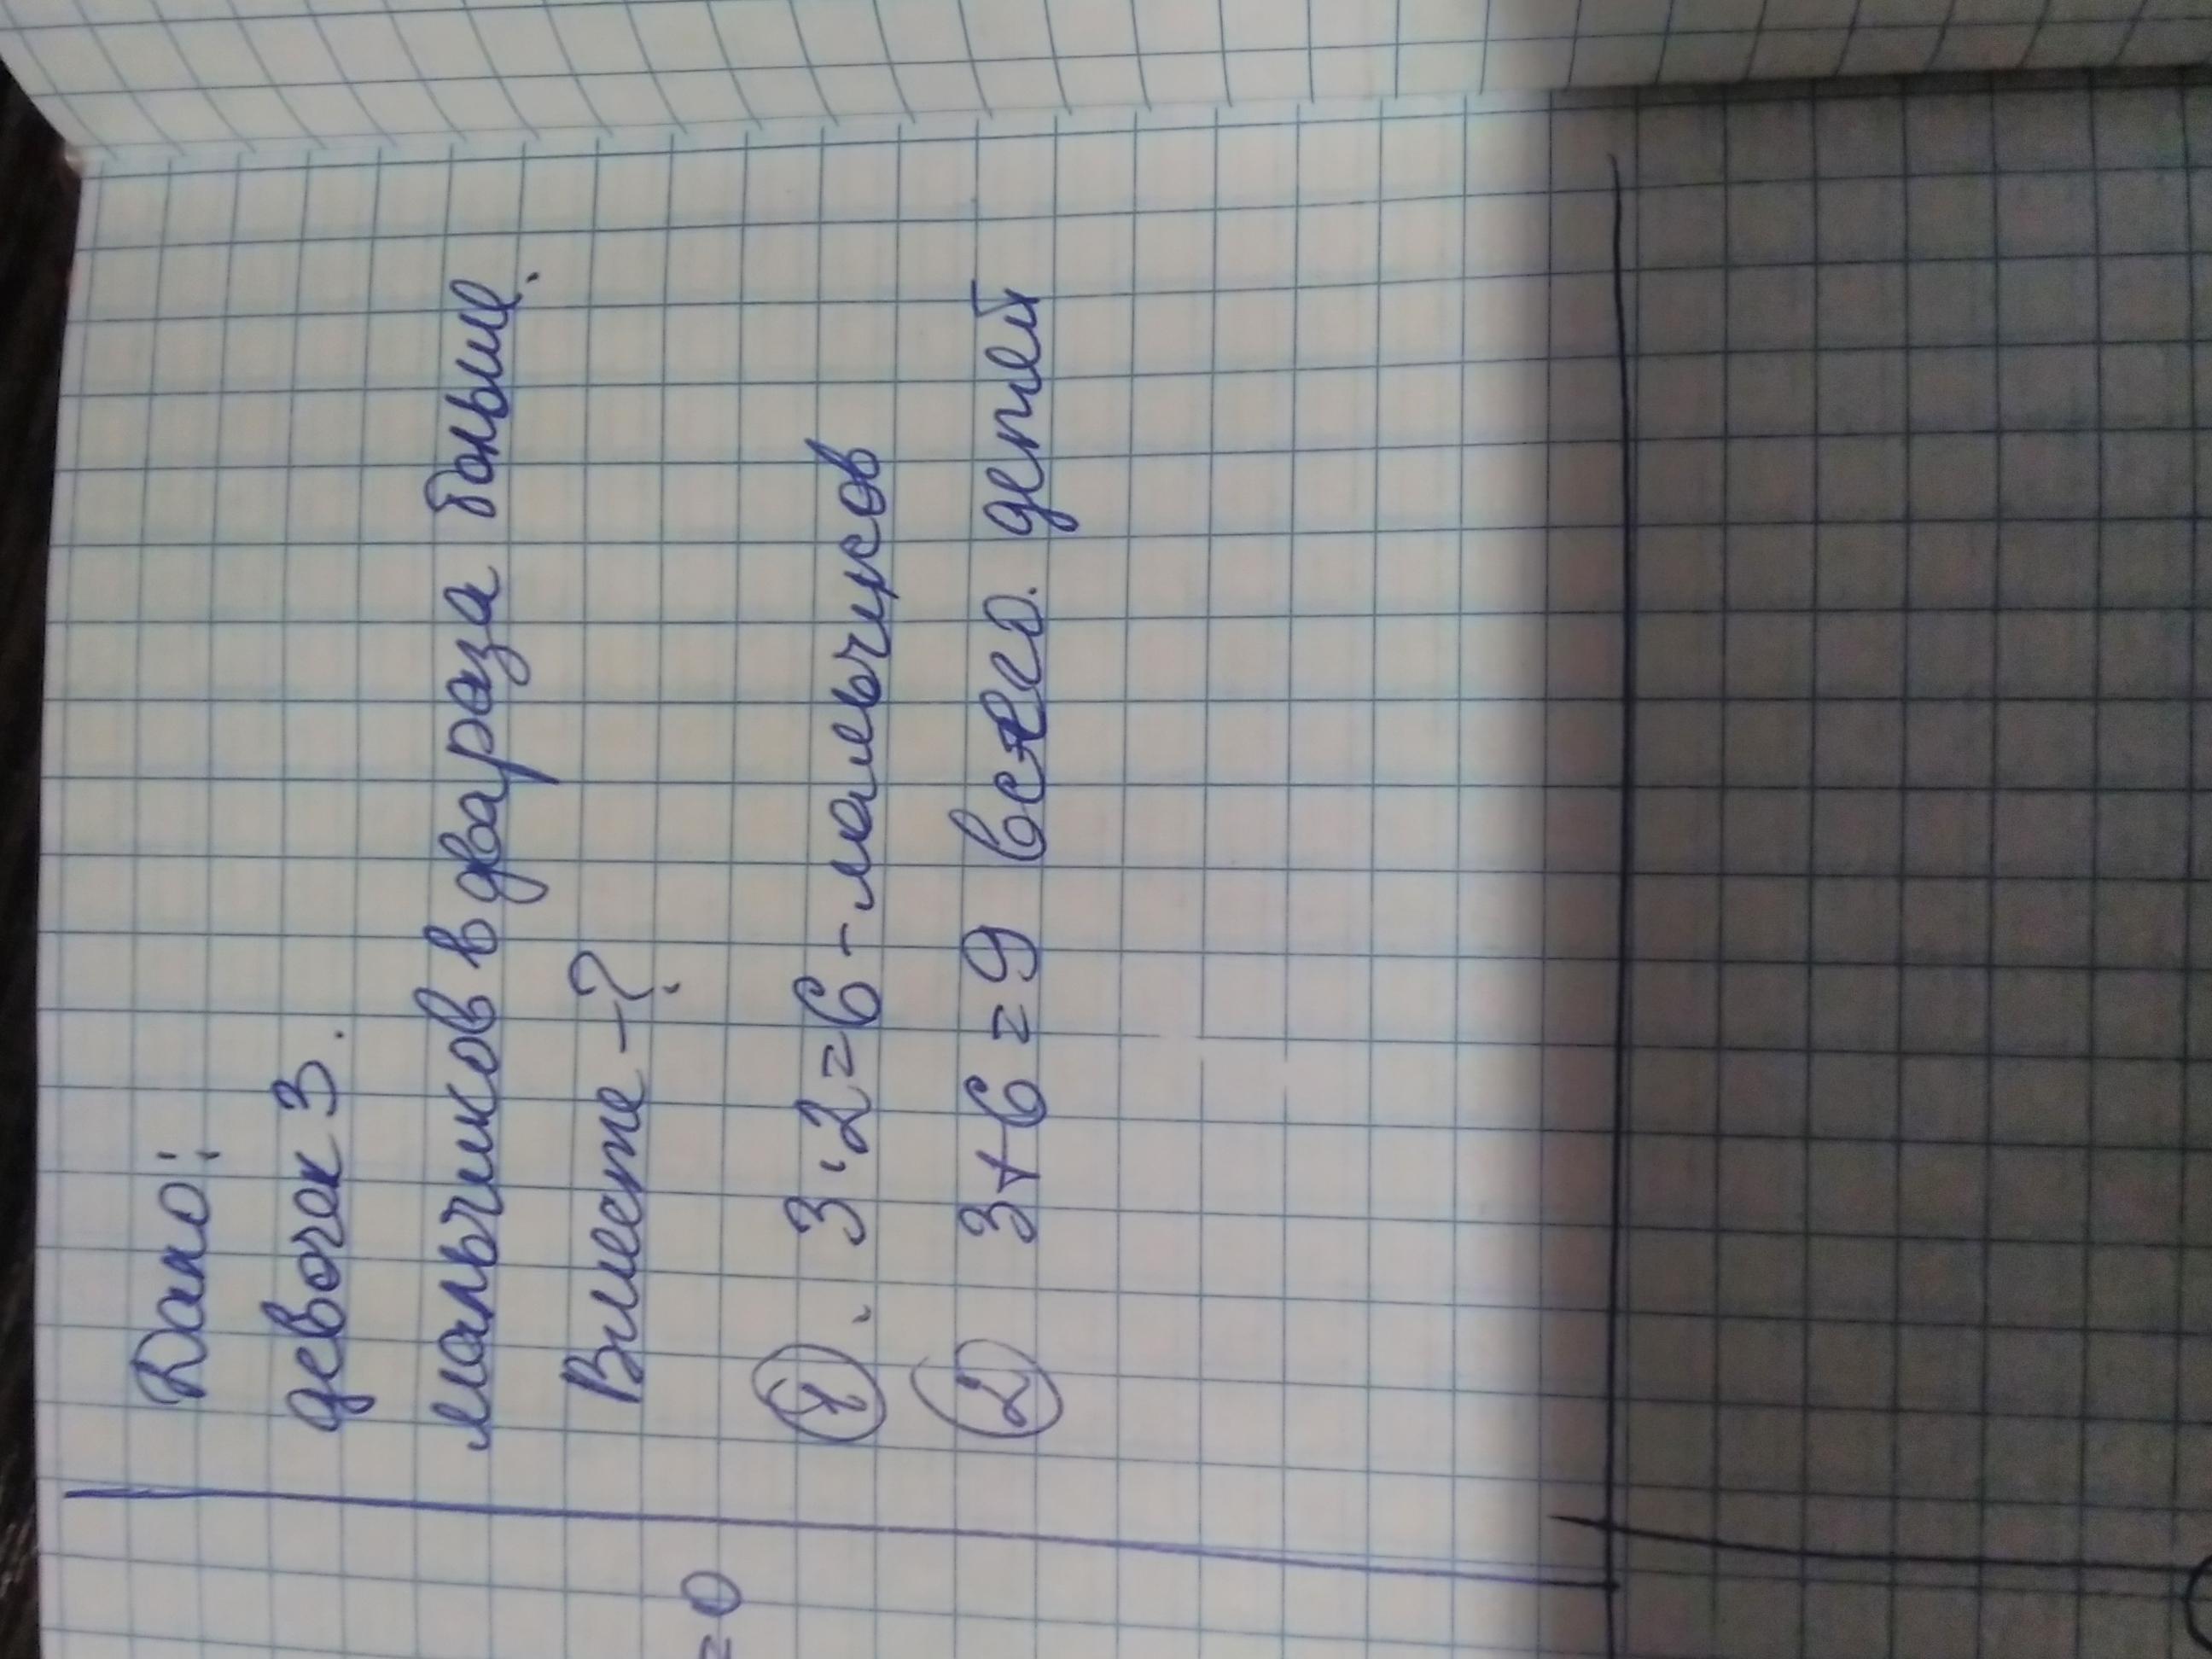 Дано:
девочек 3.
мальчиков в двараза больше.
Вместе -?
1. 3·2=6-мальчиков
2 3+6=9 всего. детей
=0